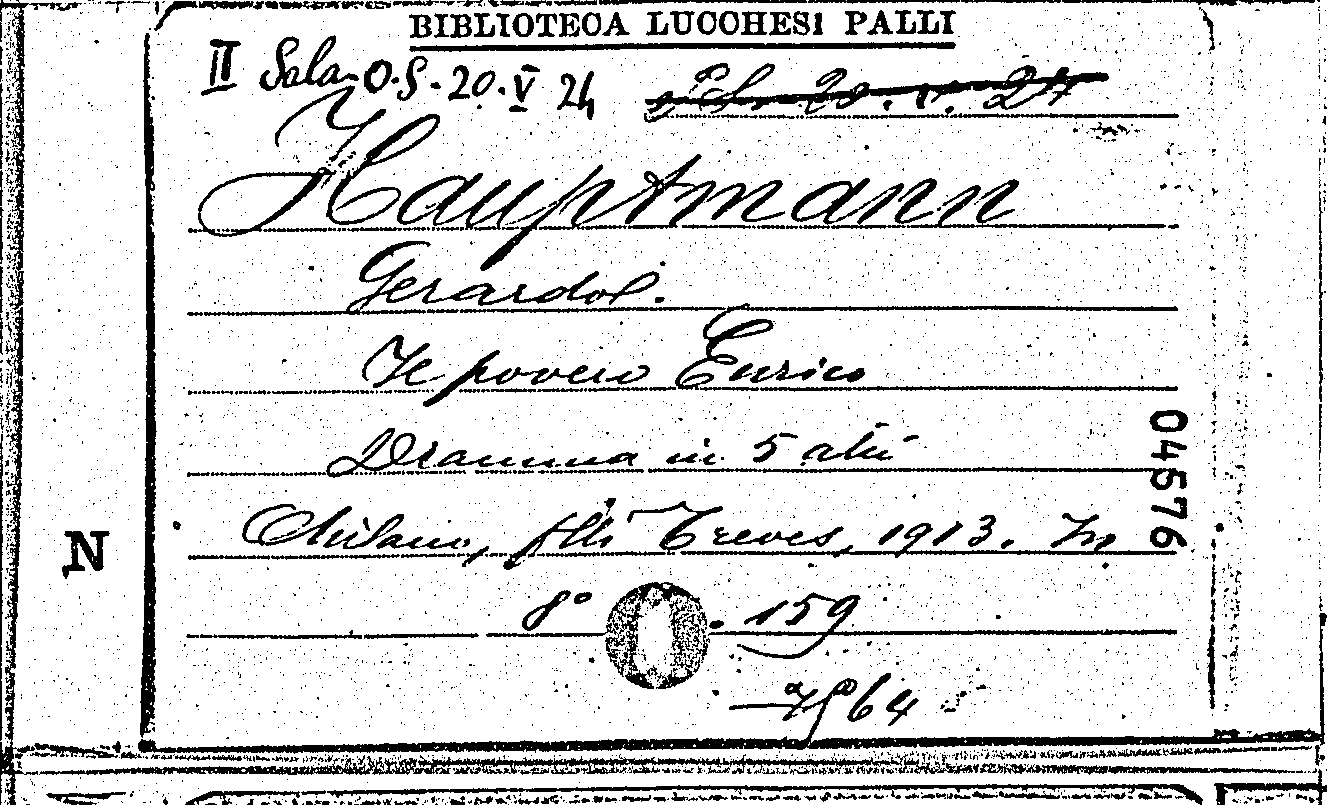 BIBLIOTECA LUCCHESI PALLI
II Sala O.S. 20. V 24
Hauptmann
Gerardo.
Il povero Enrico
Dramma in 5 atti
Milano, flli Treves, 1913. In
8° . 159
04576
N